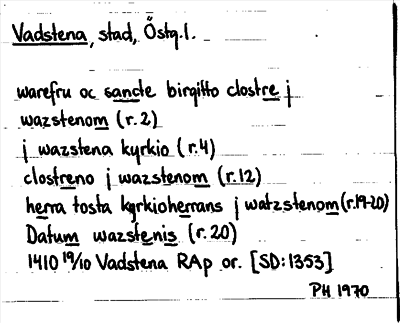 Vadstena, stad, Östg.l.
warefru oc sancte birgitto clostre j
wazstenom (r.2)
j wazstena kyrkio (r.4)
clostreno j wazstenom (r.12)
herra tosta kyrkioherrans j watzstenom (r.19-20)
Datum wazstenis (r.20)
1410 19/10 Vadstena RAp or. [SD:1353]
PH 1970